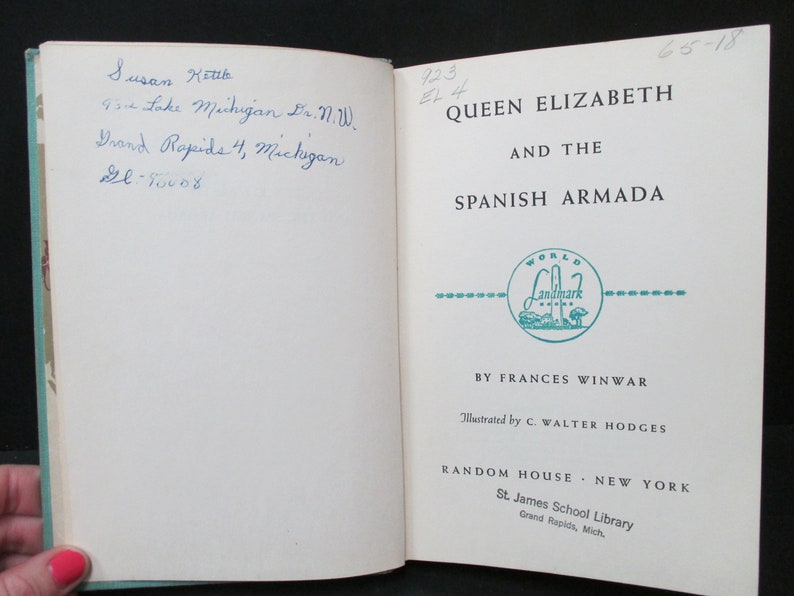 Susan Kettle
Lake Michigan Dr. N.W.
Grand Rapids 4, Michigan
Gl-
923
EL 4
65-18
QUEEN ELIZABETH
AND THE
SPANISH ARMADA
WORLD
Landmark
BOOKS
BY FRANCES WINWAR
Illustrated by C. WALTER HODGES
RANDOM HOUSE · NEW YORK
St. James School Library
Grand Rapids, Mich.